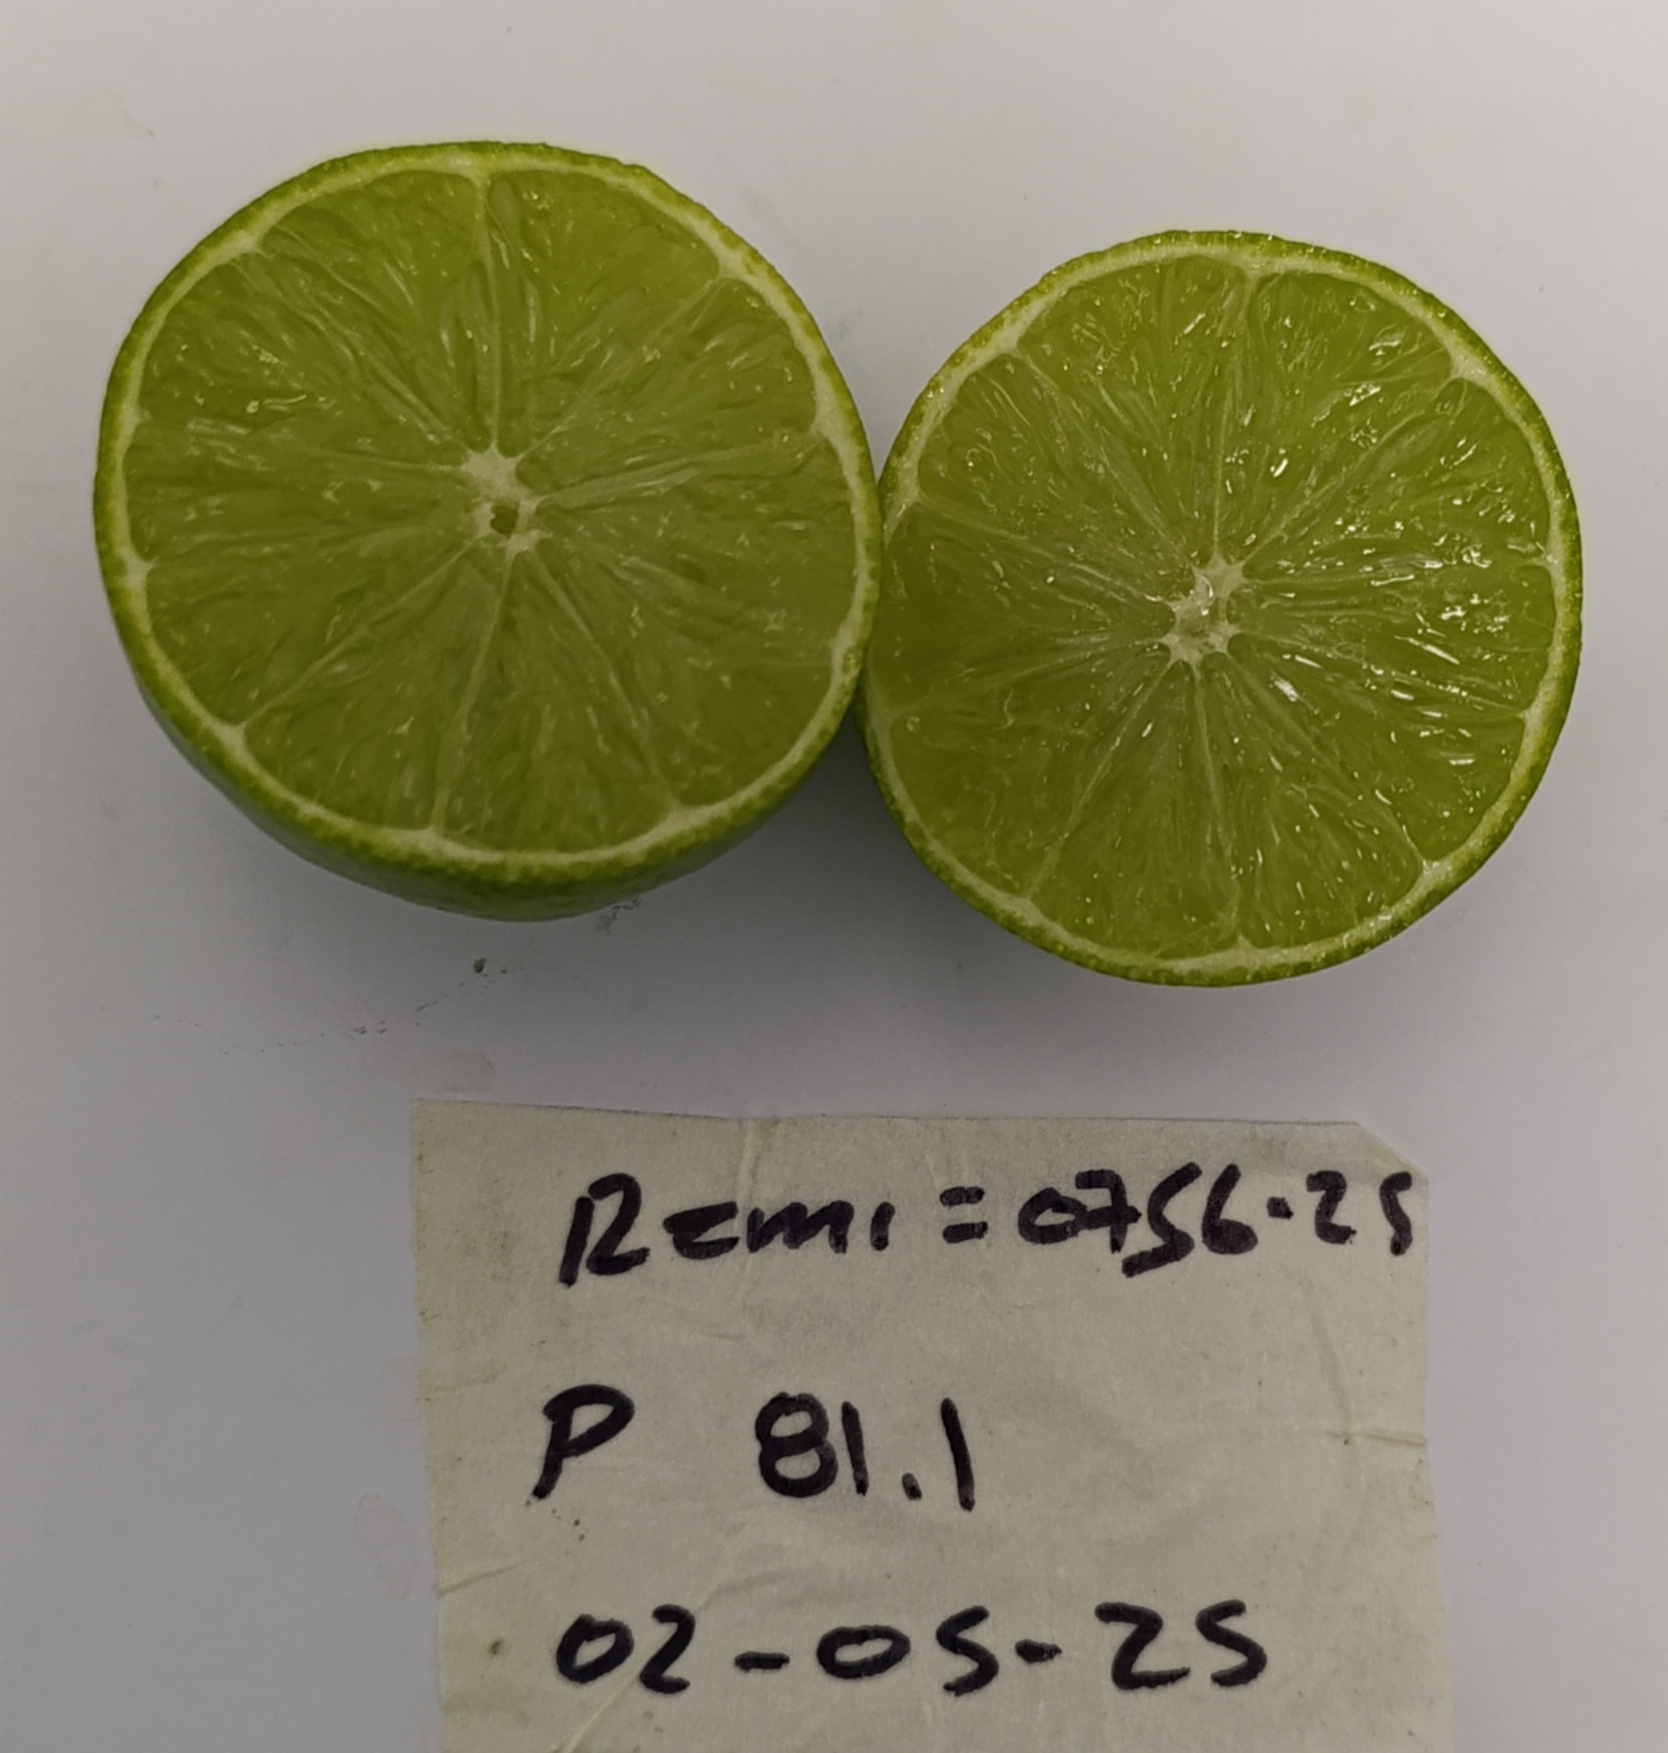 Remi = 0756.25
P 81.1
02-05-25